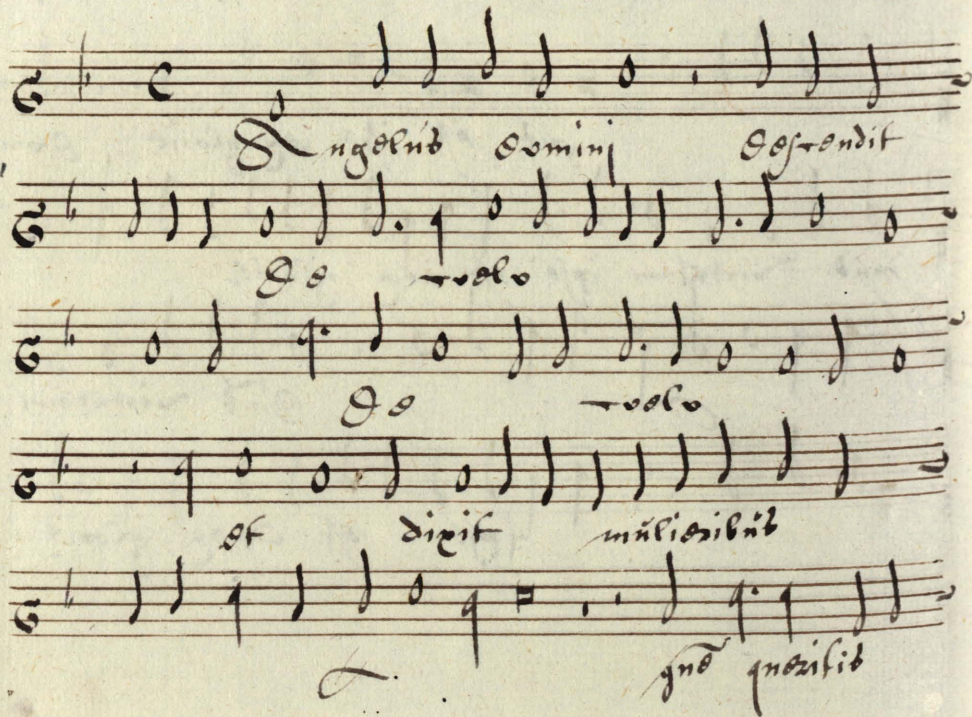 Angelus domini descendit
De coelo
De coelo
et dixit mulieribus
quē queritis